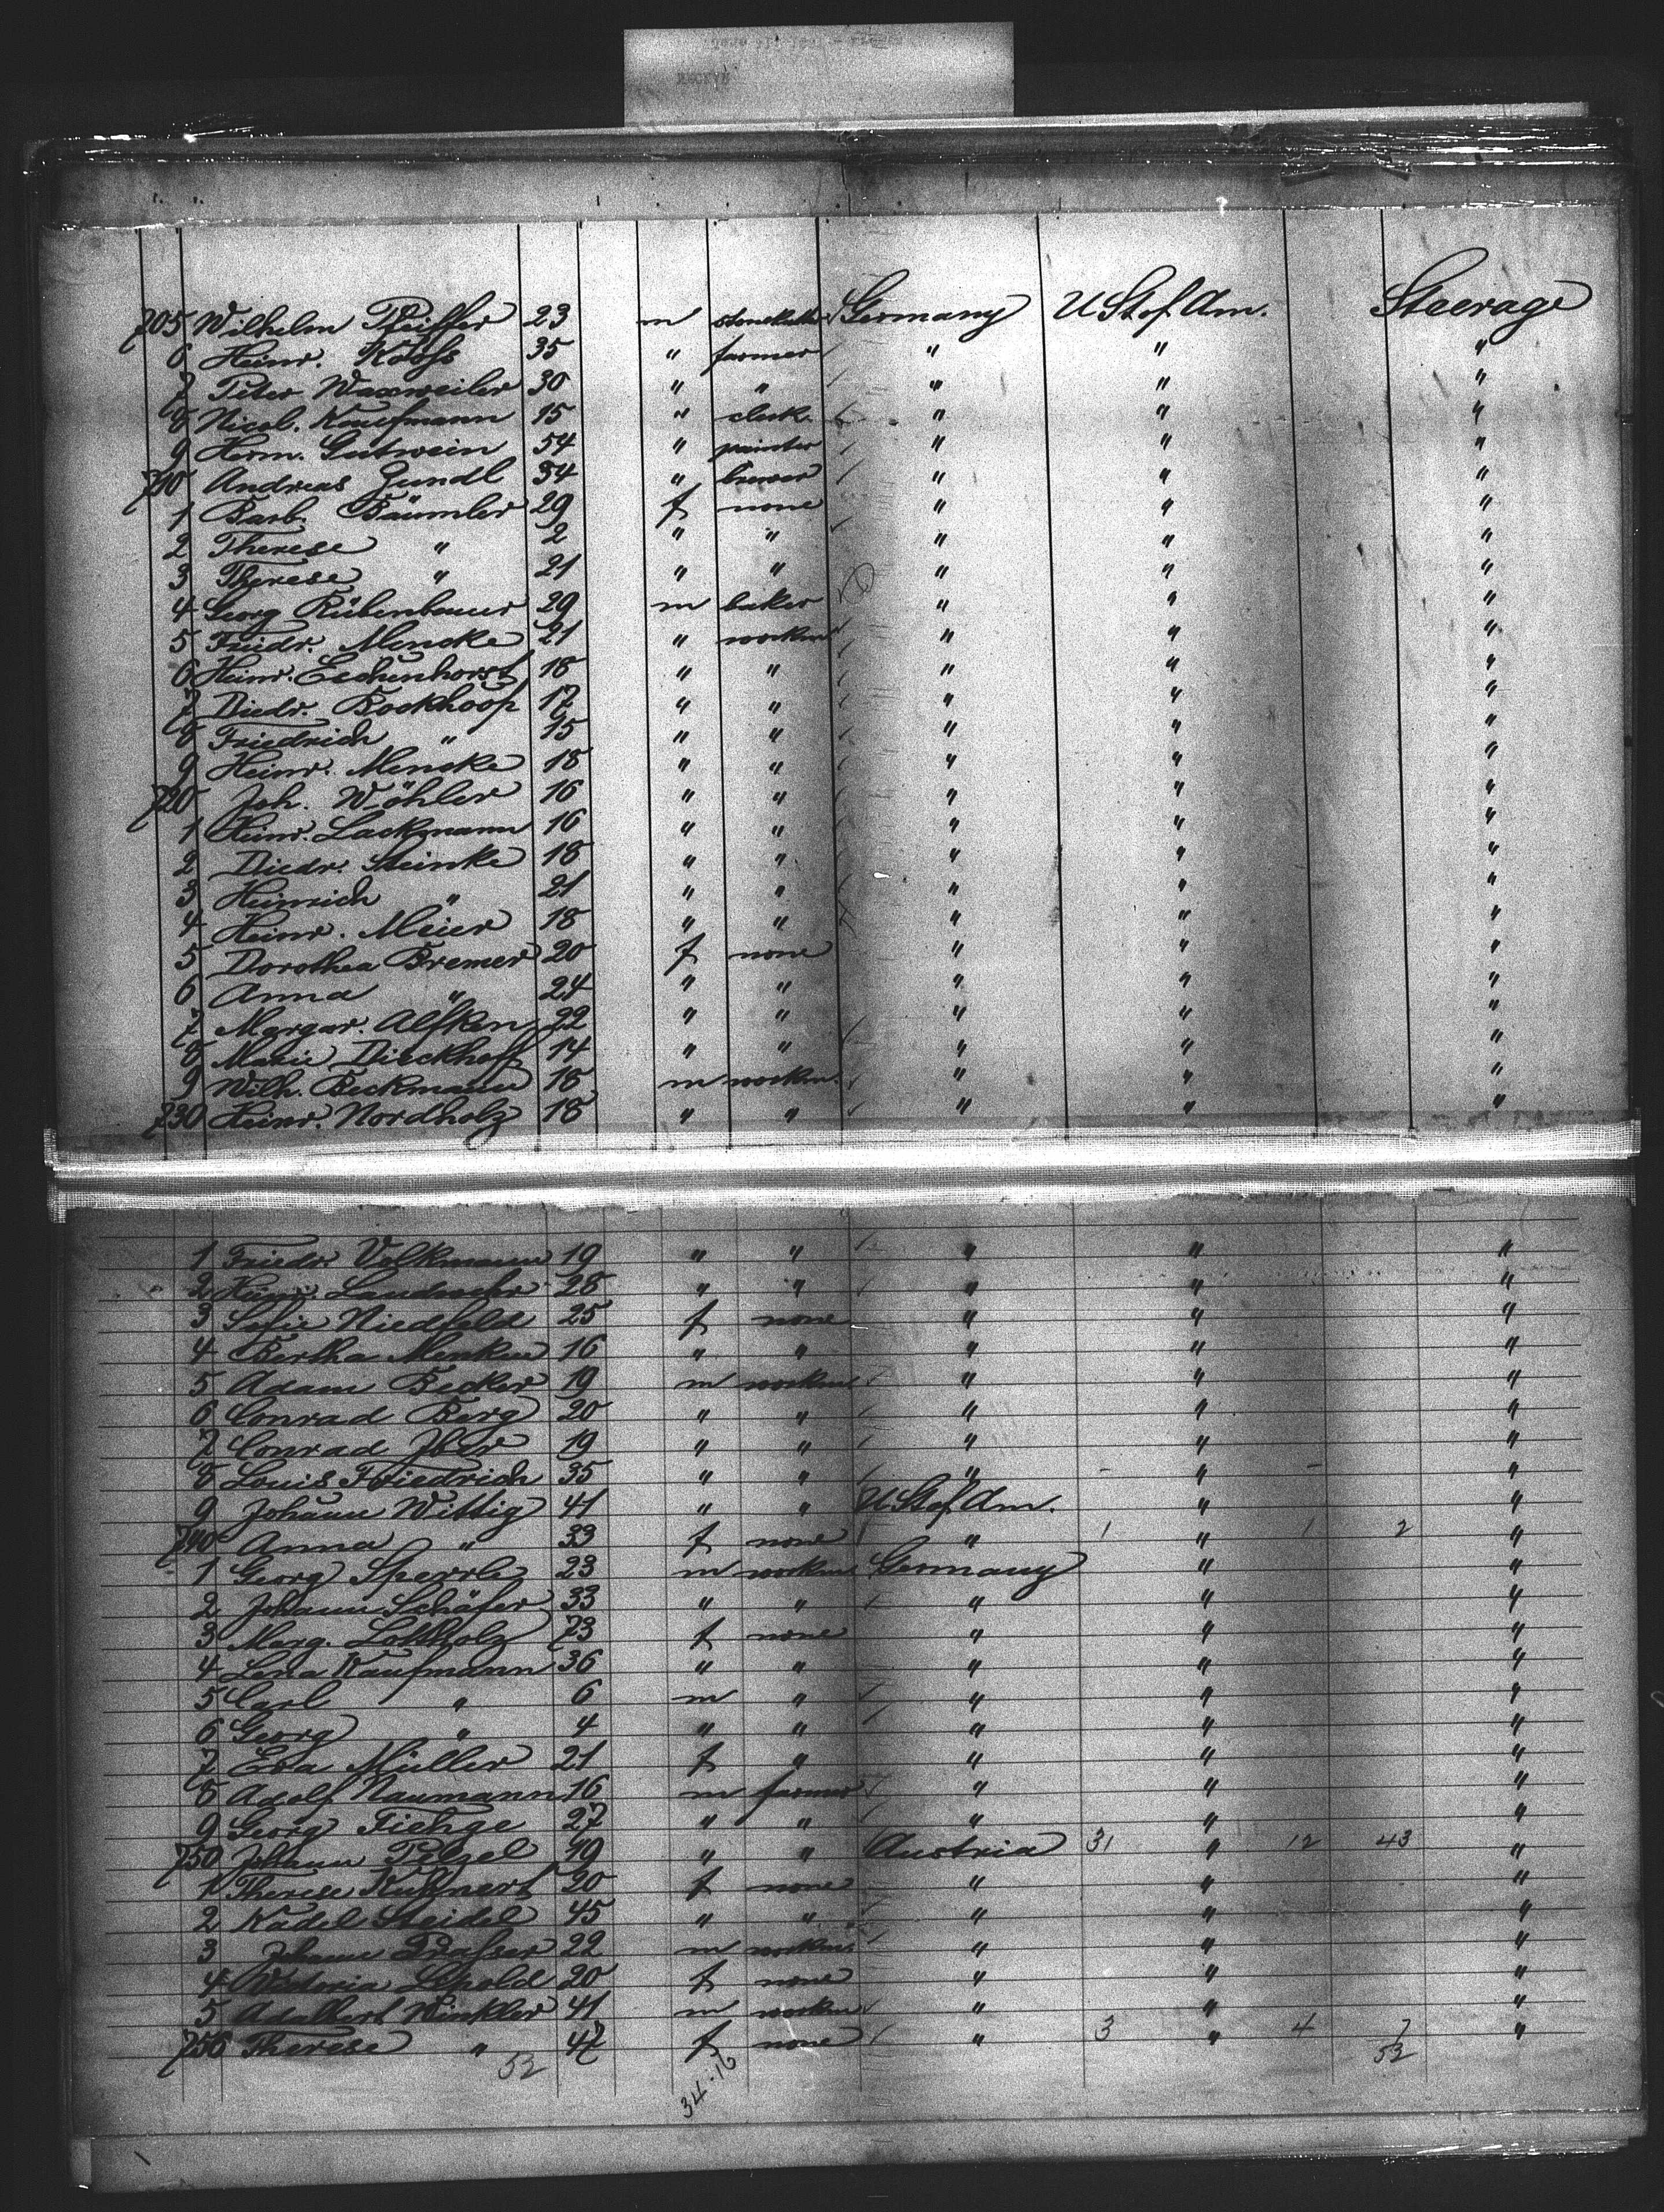 705 Wilhelm Pfeiffer 23 m stonecutter Germany U St of Am. Steerage
6 Heinr. Kooss 35 " farmer " " "
7 Peter Waxweiler 30 " " " " "
8 Nicol. Kaufmann 15 " clerk " " "
9 Herm. Gutwein 54 " painter " " "
710 Andreas Zundl 34 " brewer " " "
1 Barb. Bäumler 29 f none " " "
2 Therese " 2 " " " " "
3 Therese " 21 " " " " "
4 Georg Rübenbauer 29 m baker " " "
5 Friedr. Mencke 21 " workm " " "
6 Heinr. Eschenhorst 18 " " " " "
7 Diedr. Bockhoop 17 " " " " "
8 Friedrich " 15 " " " " "
9 Heinr. Mencke 18 " " " " "
720 Joh. Wöhler 16 " " " " "
1 Heinr. Lackmann 16 " " " " "
2 Diedr. Steinke 18 " " " " "
3 Heinrich " 21 " " " " "
4 Heinr. Meier 18 " " " " "
5 Dorothea Bremer 20 f none " " "
6 Anna " 24 " " " " "
7 Margar. Alfken 22 " " " " "
8 Marie Dieckhoff 14 " " " " "
9 Wilh. Beckmann 18 m workm. " " "
730 Heinr. Nordholz 18 " " " " "
1 Friedr. Volkmann 19 " " " " "
2 Heinr. Landwehr 28 " " " " "
3 Sofie Niedfeld 25 f none " " "
4 Bertha Menken 16 " " " " "
5 Adam Becker 19 m workm " " "
6 Conrad Berg 20 " " " " "
7 Conrad 19 " " " " "
8 Louis Friedrich 35 " " " " "
9 Johann Wittig 41 " " U St of Am. " "
740 Anna " 33 f none " 1 " 1 2 "
1 Georg Sperrle 23 m workm Germany " "
2 Johann Schäfer 33 " " " " "
3 Marg. Lottholz 73 f none " " "
4 Lena Kaufmann 36 " " " " "
5 Carl " 6 m " " " "
6 Georg " 4 " " " " "
7 Eva Müller 21 f " " " "
8 Adolf Naumann 16 m farmer " " "
9 Georg Fiehge 27 " " " " "
750 Johann Pelzel 19 " " Austria 31 " 12 43 "
1 Therese Kuhnert 20 f none " " "
2 Kadel Steidel 45 " " " " "
3 Johann 22 m workm " " "
4 Victoria Lipold 20 f none " " "
5 Adalbert Winkler 41 m workm " " "
756 Therese " 47 f none " 3 " 4 7 "
52 34.16 52